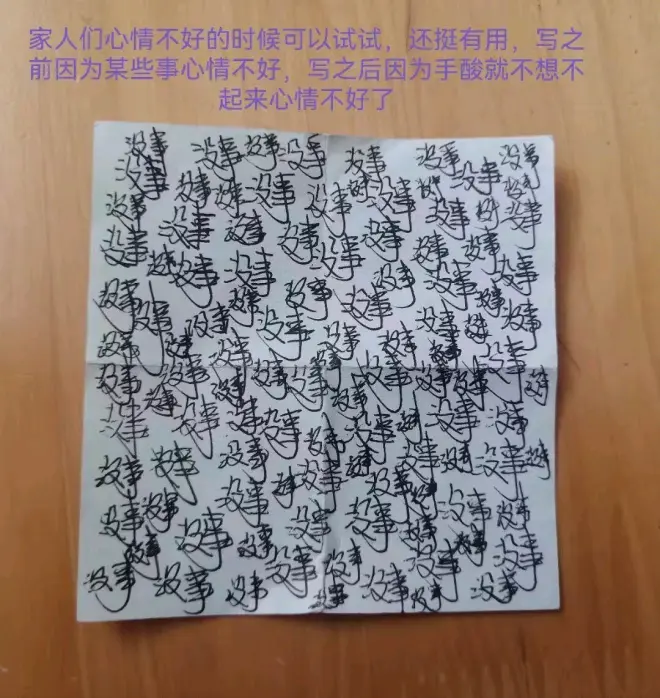 家人们心情不好的时候可以试试，还挺有用，写之
前因为某些事心情不好，写之后因为手酸就不想不
起来心情不好了
没事 没事 没事 没事 没事 没事 没事
没事 没事 没事 没事 没事 没事 没事 没事 没事 没事
没事 没事 没事 没事 没事 没事 没事 没事
没事 没事 没事 没事 没事 没事 没事 没事
没事 没事 没事 没事 没事 没事 没事 没事
没事 没事 没事 没事 没事 没事 没事 没事 没事
没事 没事 没事 没事 没事 没事 没事 没事 没事 没事
没事 没事 没事 没事 没事 没事 没事 没事 没事
没事 没事 没事 没事 没事 没事 没事 没事 没事
没事 没事 没事 没事 没事 没事 没事 没事
没事 没事 没事 没事 没事 没事 没事 没事
没事 没事 没事 没事 没事 没事 没事 没事 没事